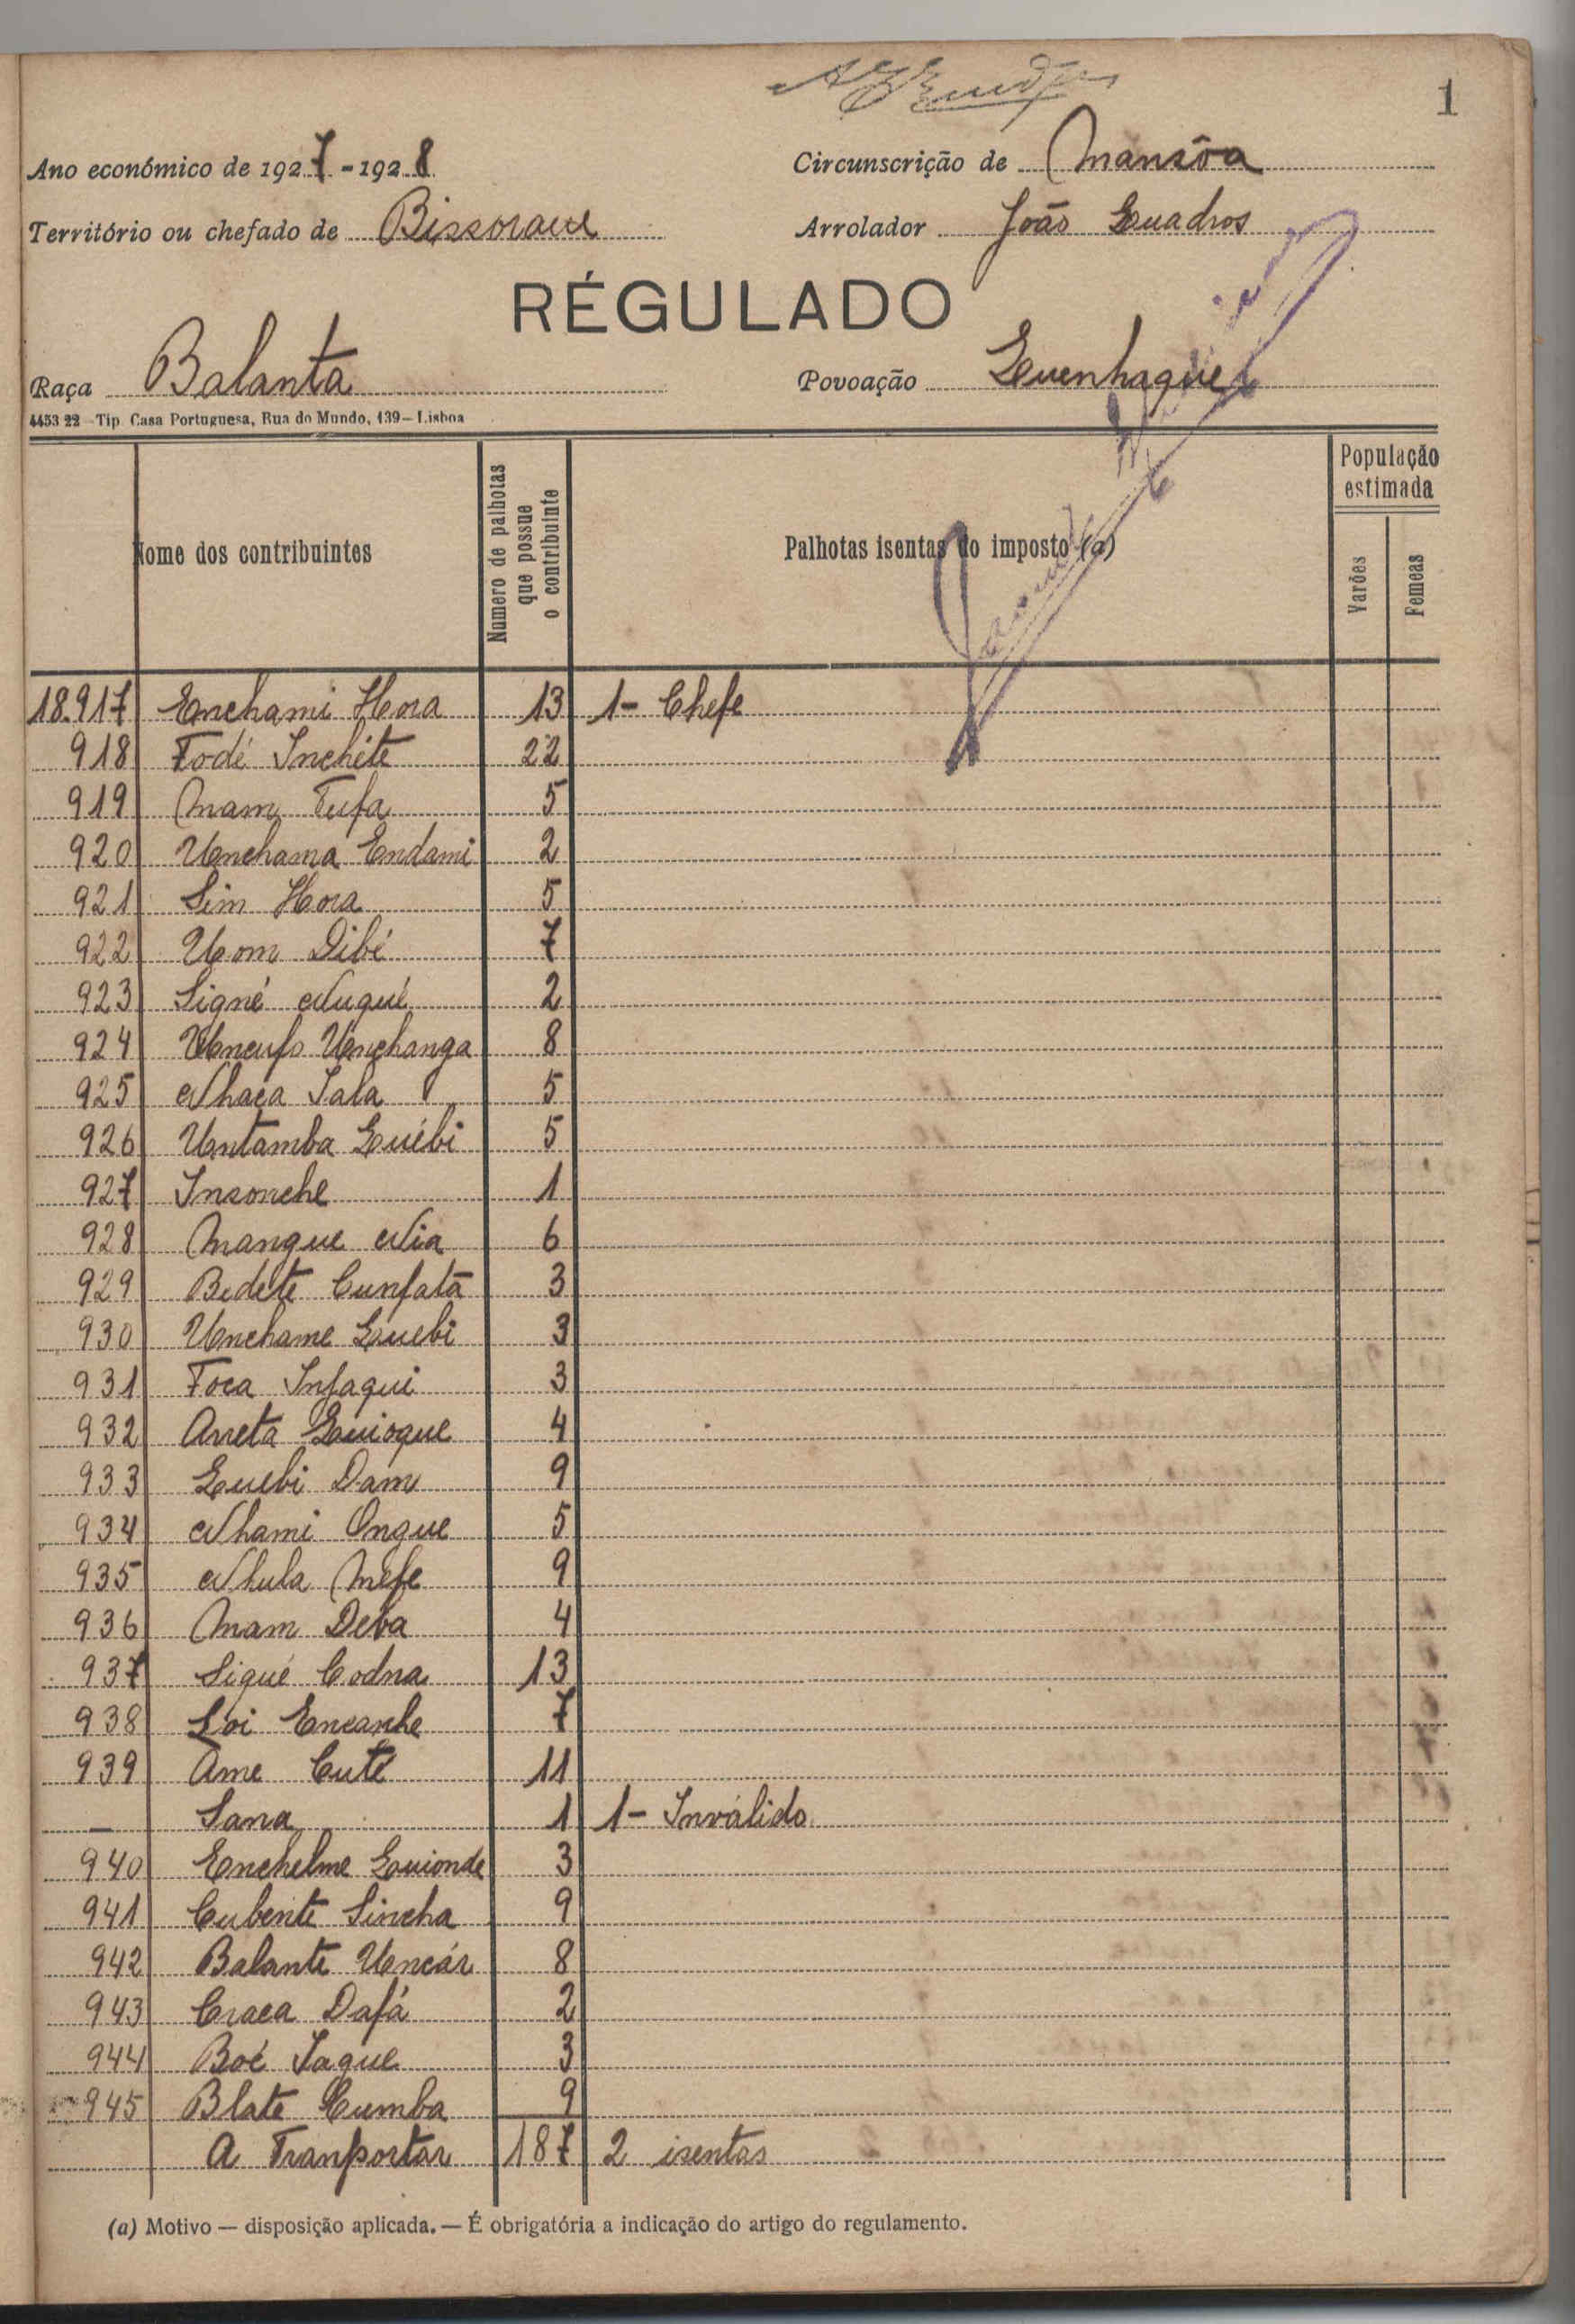 1
Ano económico de 1927-1928
Circunscrição de Mansôa
Território ou chefado de Bissorau
Arrolador João Quadros
RÉGULADO
Raça Balanta
Povoação Quenhaque
4453 22 – Tip. Casa Portuguesa, Rua do Mundo, 139 – Lisboa
Nome dos contribuintes
Número de palhotas que possue o contribuinte
Palhotas isentas do imposto (a)
População estimada
Varões
Femeas
18.917 Enchami Hora 13 1- Chefe
918 Fodé Inchéte 22
919 Mam Tufa 5
920 Unchama Endami 2
921 Sim Hora 5
922 Uom Dibé 7
923 Signé Nugué 2
924 Uncufo Unchanga 8
925 Nhaca Sala 5
926 Untamba Québi 5
927 Insonche 1
928 Mangue Nia 6
929 Bedéte Cunfatà 3
930 Unchame Quebi 3
931 Foca Infaqui 3
932 Arreta Quioque 4
933 Quebi Dam 9
934 Nhami Ongue 5
935 Nhula Mefe 9
936 Mam Deba 4
937 Sigué Codna 13
938 Loi Encanhe 7
939 Ame Cuté 11
— Sana 1 1- Inválido
940 Enchelme Quionde 3
941 Cubente Sincha 9
942 Balante Uncár 8
943 Craca Dafá 2
944 Boé Saque 3
945 Blate Cumba 9
A Tranportar 187 2 isentas
(a) Motivo — disposição aplicada. — É obrigatória a indicação do artigo do regulamento.